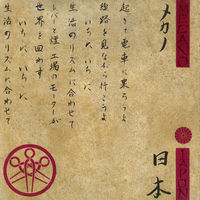 メカノ
起りて電車に乗うよ
線路を見ながら行こうよ
いちに、いちに、
生活のリズムに合わせて
レバーと煙 工場のモーターが
世界を回わす
いちに、いちに、
生活のリズムに合わせて
MECANO
JAPON
日本